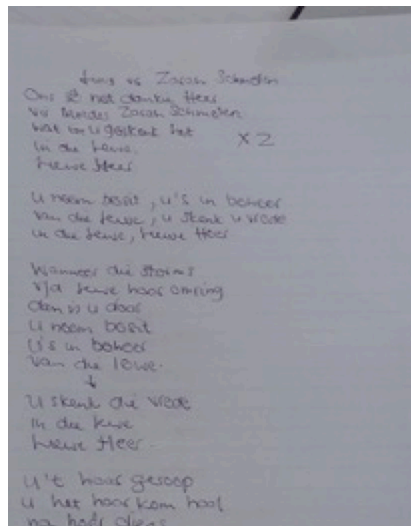 vir Zarah Schmelen
Ons sê net dankie Heer
vir Moeder Zarah Schmelen
wat u geskenk het
in die lewe. X2
Liewe Heer
U neem besit, u's in beheer
Van die lewe, u skenk u vrede
in die lewe, liewe Heer
Wanneer die storms
v/d lewe haar omring
dan is u daar
U neem besit
U's in beheer
Van die lewe.
U skenk die vrede
in die lewe
Liewe Heer.
U't haar geroep
U het haar kom haal
na haar diens